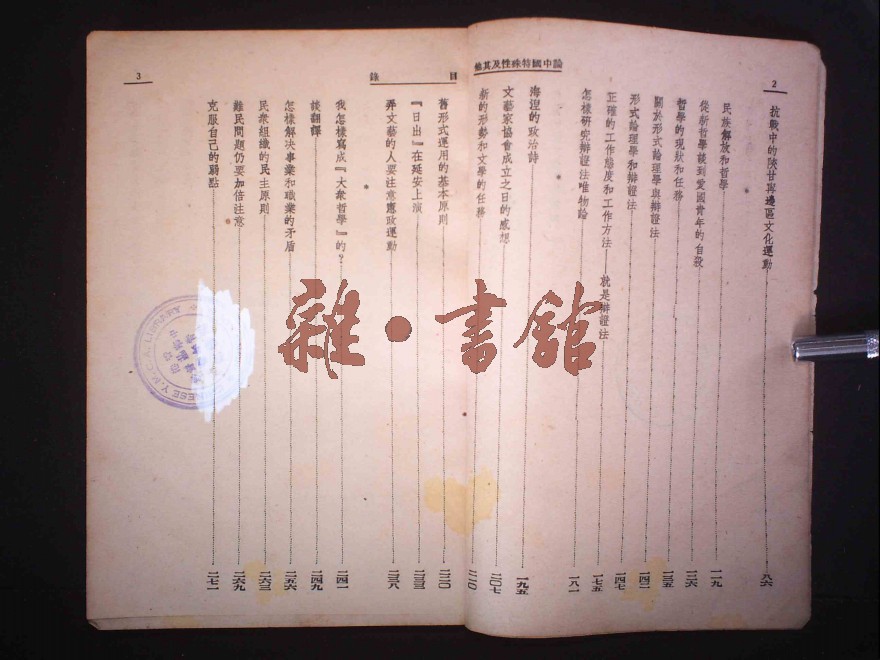 2
論中國特殊性及其他
抗戰中的陝甘寧邊區文化運動 八六
民族解放和哲學 一一九
從新哲學談到愛國青年的自殺 一二六
哲學的現狀和任務 一三五
關於形式論理學與辯證法 一四二
形式論理學和辯證法 一四七
正確的工作態度和工作方法——就是辯證法 一七五
怎樣研究辯證法唯物論 一八一
海涅的政治詩 一九五
文藝家協會成立之日的感想 二〇七
新的形勢和文學的任務 二一〇
目錄
3
舊形式運用的基本原則 二二〇
『日出』在延安上演 二三三
弄文藝的人要注意憲政運動 二三八
我怎樣寫成『大衆哲學』的？ 二四一
談翻譯 二四九
怎樣解決事業和職業的矛盾 二五六
民衆組織的民主原則 二六三
難民問題仍要加倍注意 二六九
克服自己的弱點 二七一
雜·書館
Y.M.C.A. LIBRARY